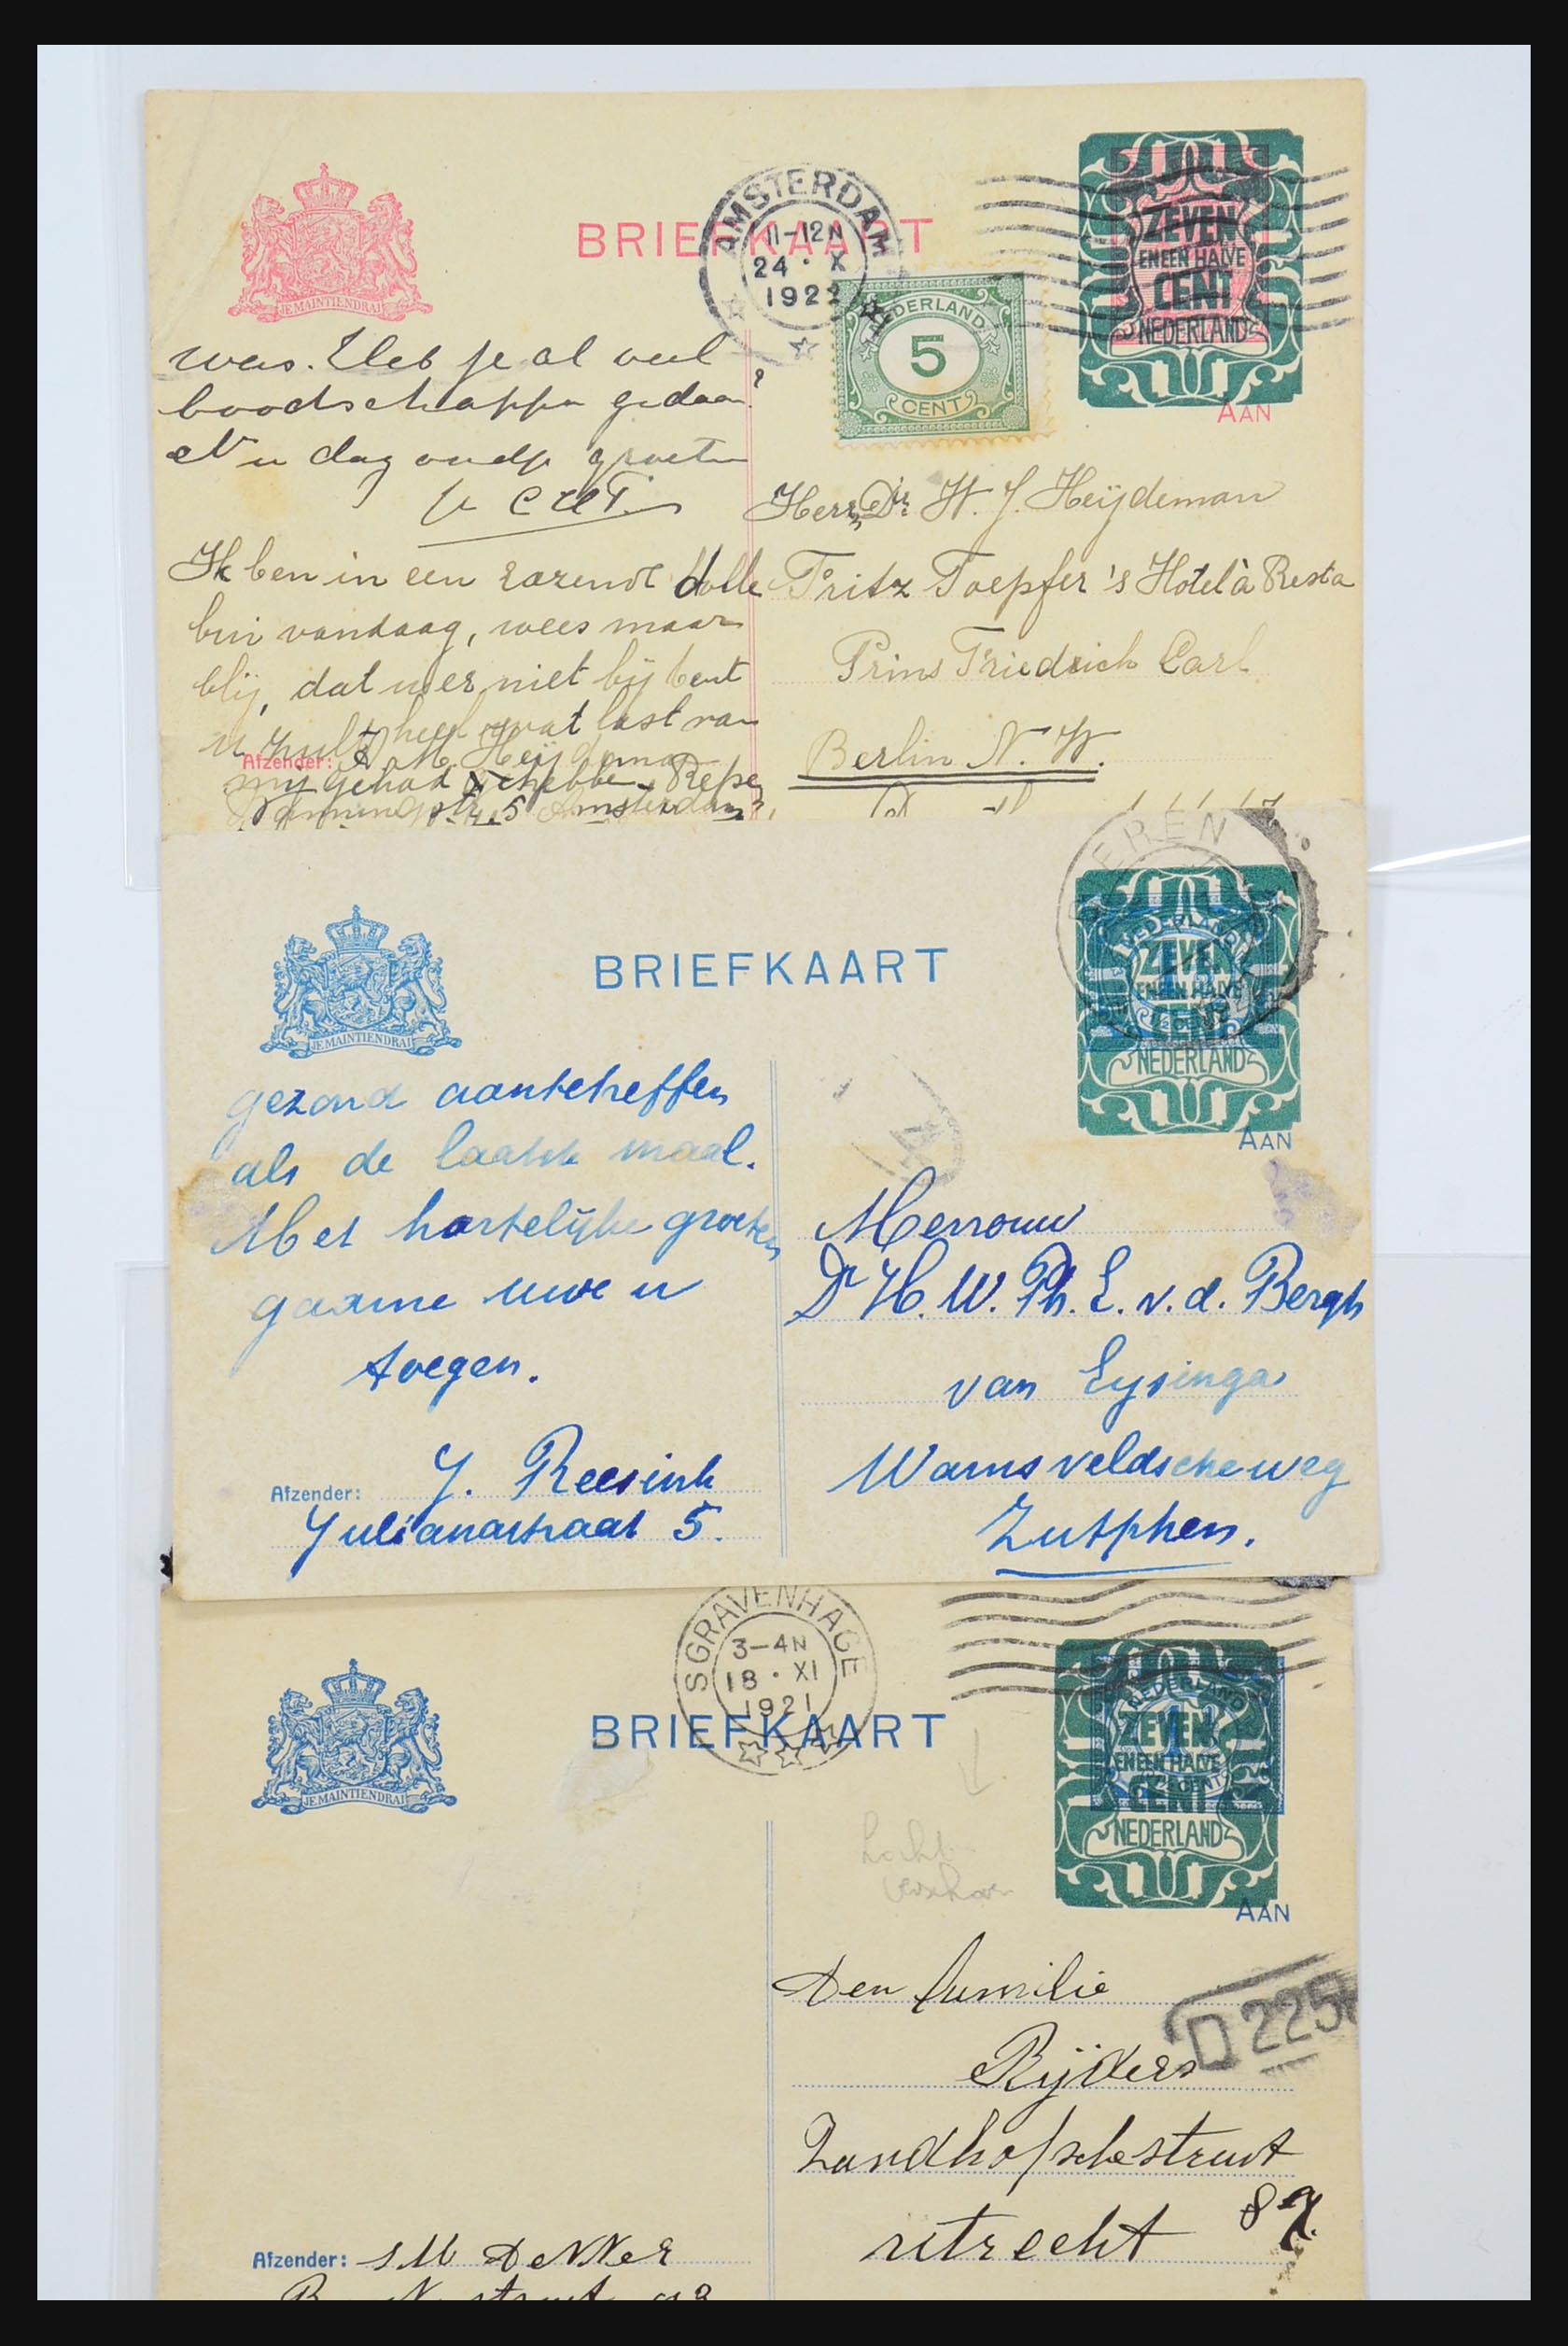 BRIEFKAART
AMSTERDAM
11-12N
24 · X
192
NEDERLAND
5
CENT
ZEVEN
EN EEN HALVE
CENT
NEDERLAND
JE MAINTIENDRAI
AAN
was. Heb je al veel
boodschappen gedaan?
Nu dag oudje groeten
je
Ik ben in een razend dolle
bui vandaag, wees maar
blij, dat u er niet bij bent
u zult heel wat last van
mij gehad hebben
Afzender: Heijdeman
5 Amsterdam
Herrn Dr. W. J. Heijdeman
Fritz Toepfer's Hotel à Resta
Prins Friedrich Carl
Berlin N. W.
BRIEFKAART
JE MAINTIENDRAI
NEDERLAND
ZEVEN
EN EEN HALVE
CENT
NEDERLAND
AAN
gezond aantetreffen
als de laatste maal.
Met hartelijke groeten
gaarne uwe u
toegen.
Afzender: J. Reesink
Julianastraat 5.
Mevrouw
Dr H. W. Ph. E. v. d. Bergh
van Eysinga
Warnsveldscheweg
Zutphen.
SGRAVENHAGE
3-4N
18 · XI
1921
BRIEFKAART
JE MAINTIENDRAI
NEDERLAND
ZEVEN
EN EEN HALVE
CENT
NEDERLAND
AAN
Den familie
D 225
Rijders
Zandhofschestraat
utrecht 87.
Afzender: S M DeKKer